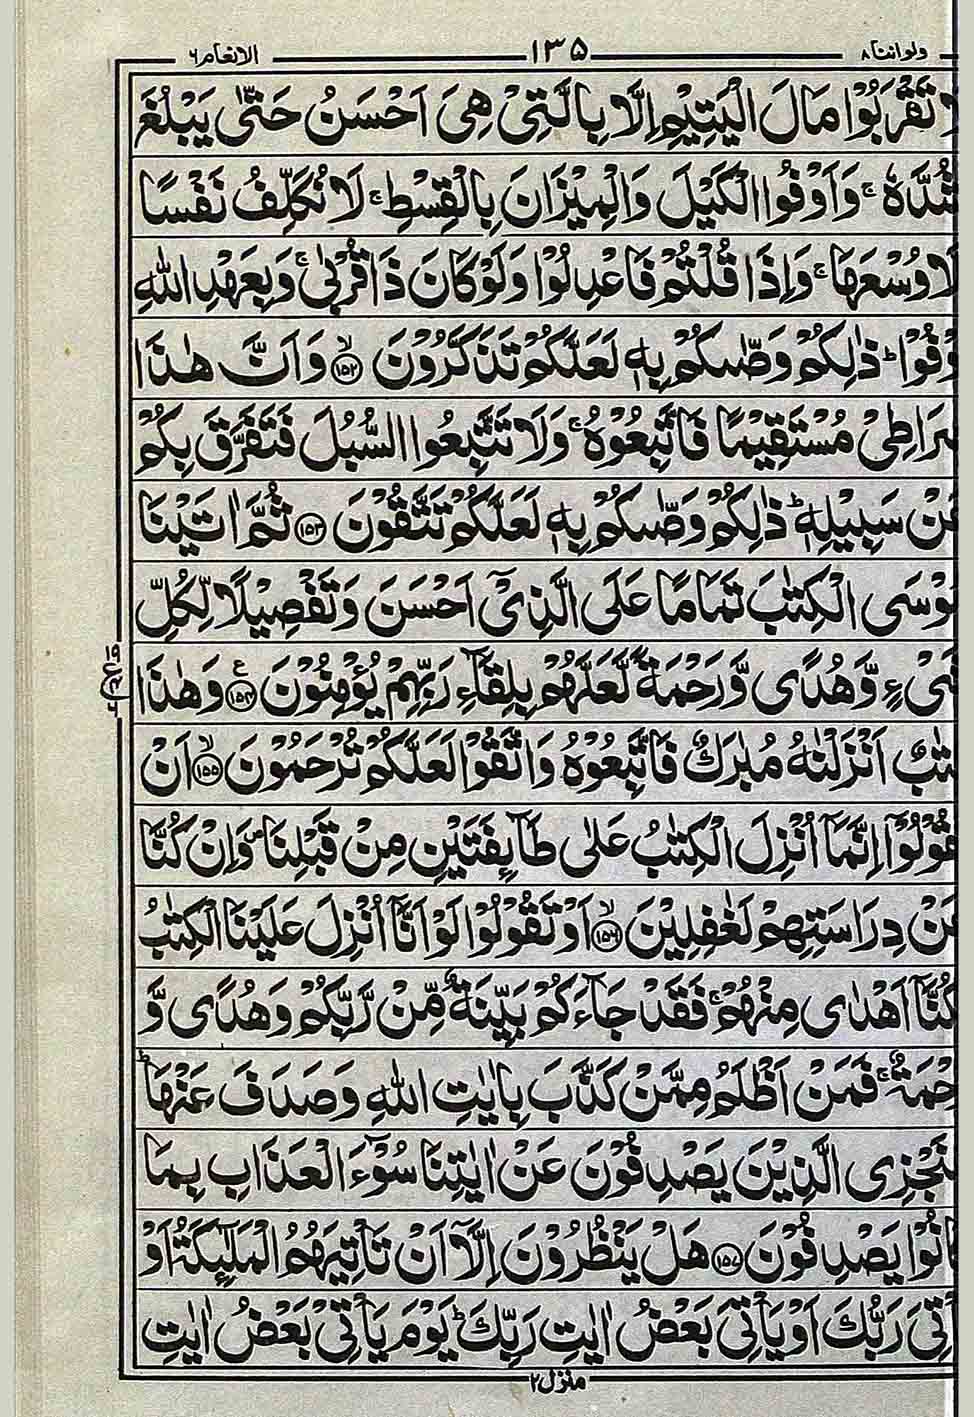 ولواننا ٨ ١٣٥ الانعام ٦
لَا تَقْرَبُوْا مَالَ الْيَتِيْمِ اِلَّا بِالَّتِىْ هِىَ اَحْسَنُ حَتّٰى يَبْلُغَ
شُدَّهٗ ۚ وَاَوْفُوا الْكَيْلَ وَالْمِيْزَانَ بِالْقِسْطِ ۚ لَا نُكَلِّفُ نَفْسًا
لَّا وُسْعَهَا ۚ وَاِذَا قُلْتُمْ فَاعْدِلُوْا وَلَوْ كَانَ ذَا قُرْبٰى ۚ وَبِعَهْدِ اللّٰهِ
وْفُوْا ؕ ذٰلِكُمْ وَصّٰكُمْ بِهٖ لَعَلَّكُمْ تَذَكَّرُوْنَ ۙ ﴿١٥٢﴾ وَاَنَّ هٰذَا
صِرَاطِىْ مُسْتَقِيْمًا فَاتَّبِعُوْهُ ۚ وَلَا تَتَّبِعُوا السُّبُلَ فَتَفَرَّقَ بِكُمْ
عَنْ سَبِيْلِهٖ ؕ ذٰلِكُمْ وَصّٰكُمْ بِهٖ لَعَلَّكُمْ تَتَّقُوْنَ ﴿١٥٣﴾ ثُمَّ اٰتَيْنَا
مُوْسَى الْكِتٰبَ تَمَامًا عَلَى الَّذِىْۤ اَحْسَنَ وَتَفْصِيْلًا لِّكُلِّ
شَىْءٍ وَّهُدًى وَّرَحْمَةً لَّعَلَّهُمْ بِلِقَآءِ رَبِّهِمْ يُؤْمِنُوْنَ ﴿١٥٤﴾ ع وَهٰذَا
١٩ ع ٤ ٦
كِتٰبٌ اَنْزَلْنٰهُ مُبٰرَكٌ فَاتَّبِعُوْهُ وَاتَّقُوْا لَعَلَّكُمْ تُرْحَمُوْنَ ۙ ﴿١٥٥﴾ اَنْ
تَقُوْلُوْۤا اِنَّمَاۤ اُنْزِلَ الْكِتٰبُ عَلٰى طَآئِفَتَيْنِ مِنْ قَبْلِنَا ۖ وَاِنْ كُنَّا
عَنْ دِرَاسَتِهِمْ لَغٰفِلِيْنَ ۙ ﴿١٥٦﴾ اَوْ تَقُوْلُوْا لَوْ اَنَّاۤ اُنْزِلَ عَلَيْنَا الْكِتٰبُ
لَكُنَّاۤ اَهْدٰى مِنْهُمْ ۚ فَقَدْ جَآءَكُمْ بَيِّنَةٌ مِّنْ رَّبِّكُمْ وَهُدًى وَّ
رَحْمَةٌ ۚ فَمَنْ اَظْلَمُ مِمَّنْ كَذَّبَ بِاٰيٰتِ اللّٰهِ وَصَدَفَ عَنْهَا ؕ
سَنَجْزِى الَّذِيْنَ يَصْدِفُوْنَ عَنْ اٰيٰتِنَا سُوْٓءَ الْعَذَابِ بِمَا
كَانُوْا يَصْدِفُوْنَ ﴿١٥٧﴾ هَلْ يَنْظُرُوْنَ اِلَّاۤ اَنْ تَاْتِيَهُمُ الْمَلٰٓئِكَةُ اَوْ
يَاْتِىَ رَبُّكَ اَوْ يَاْتِىَ بَعْضُ اٰيٰتِ رَبِّكَ ؕ يَوْمَ يَاْتِىْ بَعْضُ اٰيٰتِ
منزل ٢